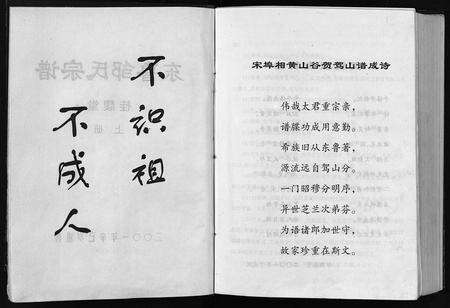 不识祖
不成人
宋埠相黄山谷贺驾山谱成诗
伟哉太君重宗亲，
谱牒功成用意勤。
希族旧从东鲁著，
源流远自驾山分。
一门昭穆分明序，
异世芝兰次第芬。
为语诸郎加世守，
故家珍重在斯文。